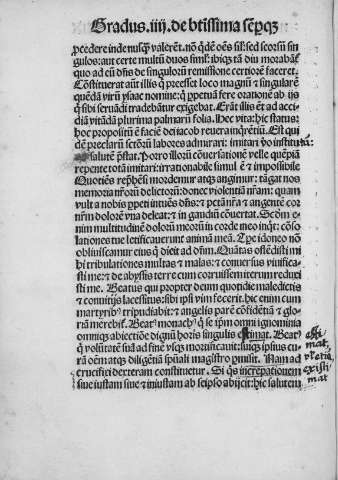 Gradus.iiij.de btissima sẽp̱q̃
ꝓcedere inde nusq̃ valerẽt. nõ q̃dẽ oẽs sil: sed seorsũ sin
gulos: aut certe multũ duos simĺ: ibiq̃ tã diu morabãť
quo ad eũ dñs de singulorũ remissione certiorẽ faceret.
Cõstituerat aũt illis q̃ p̃esset loco magnũ ⁊ singularẽ
quẽdã virũ ysaac nomine: q̃ ꝑpetuã fere orationẽ ab ijs
q̃ sibi seruãdi tradebãtur exigebat. Erãt illis ⁊ ad acci
diã vitãdã plurima palmarũ folia. Hec vita: hic status:
hoc propositũ ẽ faciẽ dei iacob reuera inq̃rẽtiũ. Est qui
dẽ preclarũ sctorũ labores admirari: imitari ỽo institutũ:
salutẽ p̃stat. Porro illorũ cõuersationẽ velle quẽpiã
repente totã imitari: irrationabile simul ẽ ⁊ impossibile
Quotiẽs rep̃hẽsi mordemur atq̃ angimur: tãgat nos
memoria nr̃orũ delictorũ: donec violentiã nr̃am: quam
vult a nobis ꝑpeti intuẽs dñs: ⁊ petãnr̃a ⁊ angentẽ cor
nr̃m dolorẽ vna deleat: ⁊ in gaudiũ cõuertat. Scdm e
nim multitudinẽ dolorũ meorũ in corde meo inq̃t: cõso
lationes tue letificauerunt animã meã. Tpe idoneo nõ
obliuiscamur eius q̃ dicit ad dñm. Quãtas ostẽdisti mi
hi tribulationes multas ⁊ malas: ⁊ conuersus viuifica
sti me: ⁊ de abyssis terre cum corruissem iterum reduxi
sti me. Beatus qui propter deum quotidie maledictis
⁊ conuitijs lacessitus: sibi ipsi vim fecerit. hic enim cum
martyribꝰ tripudiabit: ⁊ angelis parẽ cõfidẽtiã ⁊ glo
riã merebiť. Beatꝰ monachꝰ q̃ se ip̃m omni ignominia
omniq̃ abiectiõe dignũ horis singulis estimat. Beatꝰ
q̃ volũtatẽ suã ad finẽ vsq̃ mortificauit: suiq̃ ipsius cu
rã oẽm atq̃ diligẽtiã sp̃uali magistro ꝑmisit. Nam ad
crucifixi dexteram constituetur. Si q̃s increpationem
siue iustam siue ⁊ iniustam ab seipso abijcit: hic salutem